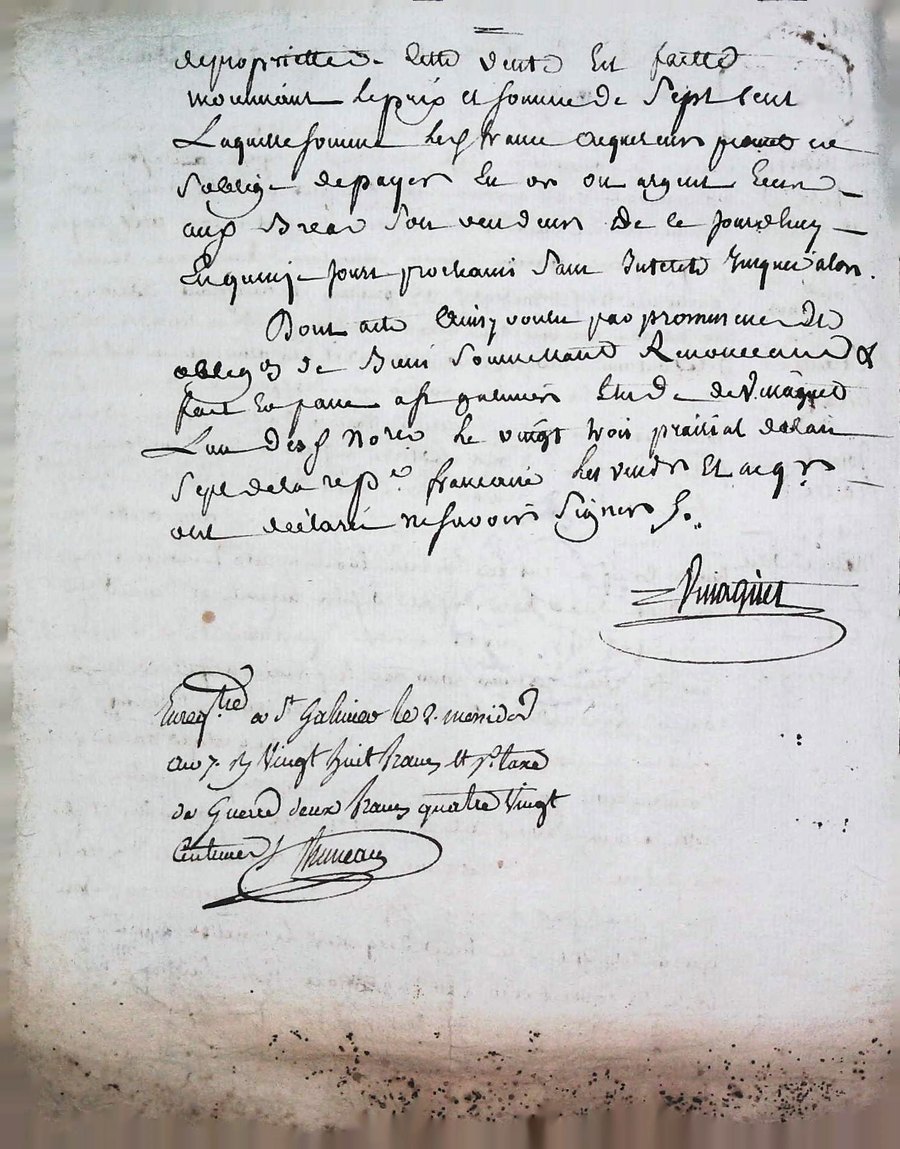 de propriettee. Cette vente Est faitte
mouennant le prix et somme de Sept Cent
Laquelle somme les francs acquereurs promet
s'oblige de payer En or ou argent
aux Son vendeurs De ce jourdhuy
En quinze jours prochains Sans Interets jusques alors.
Dont acte ainsy voulu par promesse
oblig on de Biens Soumettant Renonceant &
fait En passé a st galmier Etude de Vmaguet
L'an des Notre le vingt trois prairial de lan
Sept de la rep.e francaise Les vendrs Et acqrs
ont déclaré ne savoir Signer
Vmaguet
Enreg.tré a St Galmier le 2 messidor
an 7. Vingt huit francs et pr taxe
de Guerre deux francs quatre Vingt
Centimes